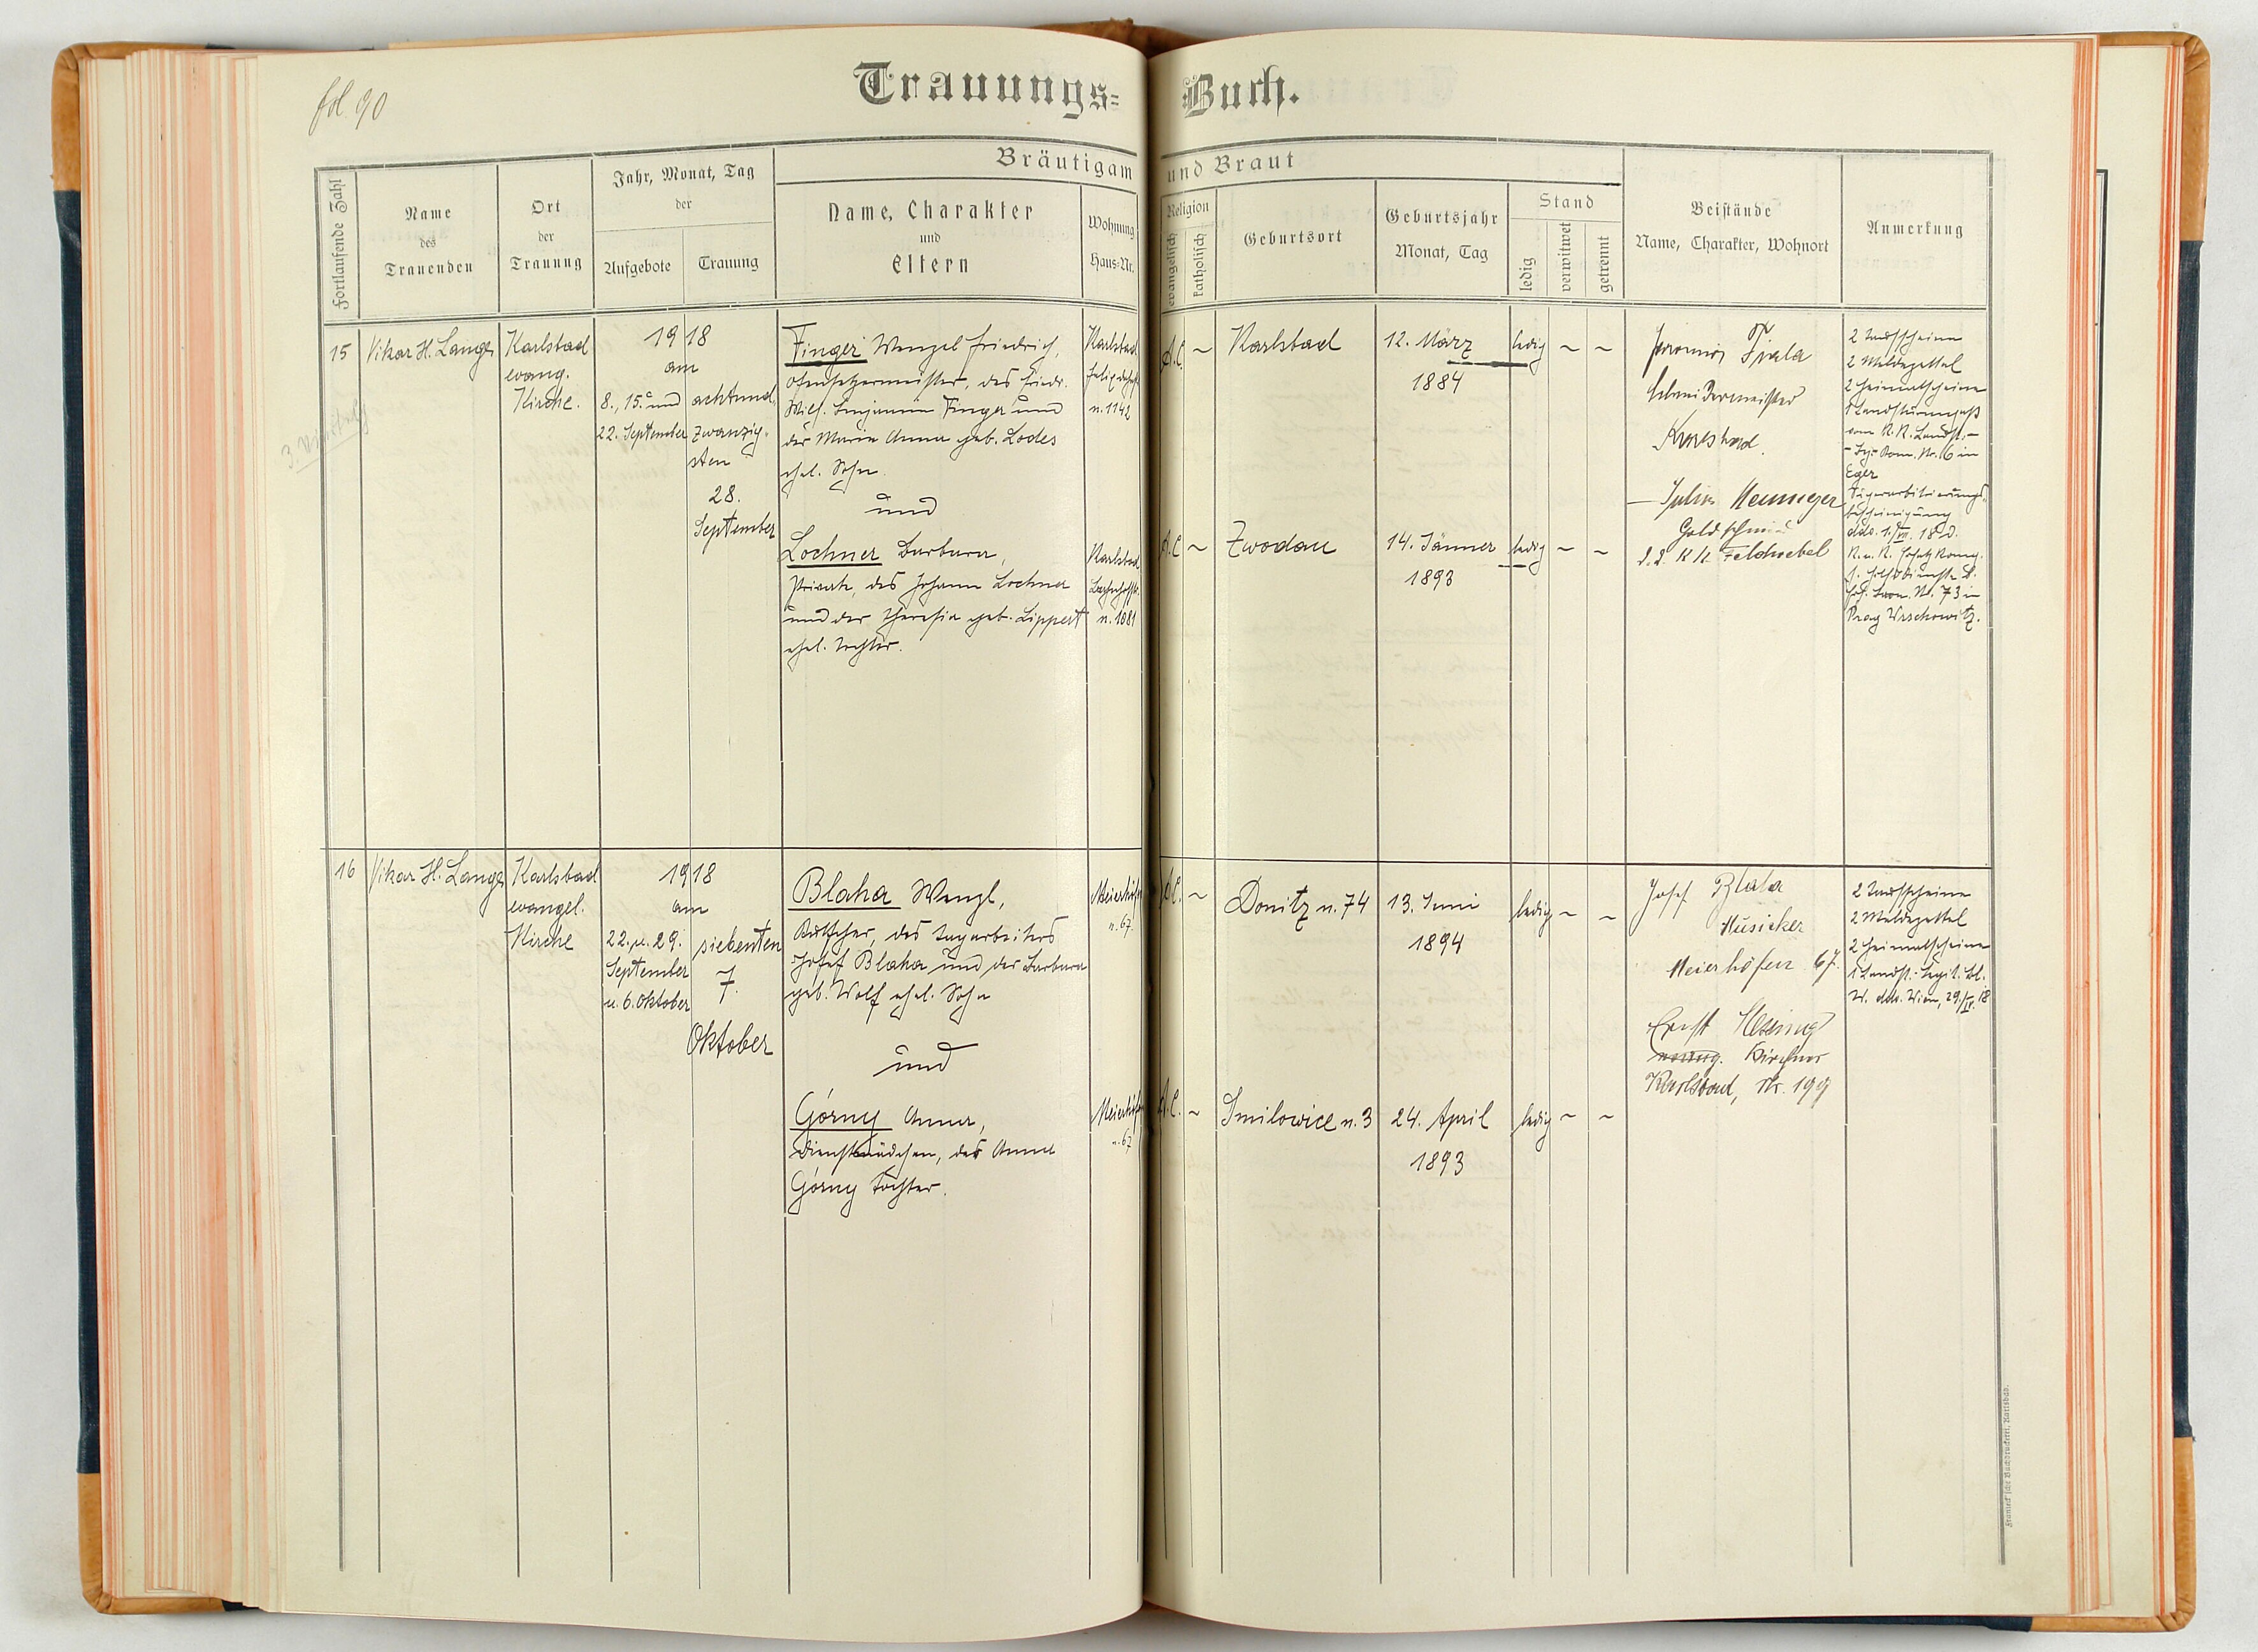 fol 90
Trauungs=Buch.
Bräutigam und Braut
Fortlaufende Zahl
Name
des
Trauenden
Ort
der
Trauung
Jahr, Monat, Tag
der
Aufgebote
Trauung
Name, Charakter
und
Eltern
Wohnung
Haus=Nr.
Religion
evangelisch
katholisch
Geburtsort
Geburtsjahr
Monat, Tag
Stand
ledig
verwitwet
getrennt
Beistände
Name, Charakter, Wohnort
Anmerkung
15
Vikar H. Lange
Karlsbad
evang.
Kirche.
1918
am
8., 15. und
22. September
achtund
zwanzig-
sten
28.
September
Finger Wenzel Friedrich,
Ofensetzermeister, des Friedr.
Wilh. Benjamin Finger und
der Maria Anna geb. Lodes
ehel. Sohn.
und
Lochner Barbara,
Private, des Johann Lochner
und der Theresia geb. Lippert
ehel. Tochter.
Karlsbad
n. 1142
Karlsbad
Bahnhofstr.
n. 1081
A.C. ~
Karlsbad
12. März
1884
ledig ~ ~
A.C. ~
Zwodau
14. Jänner
1893
ledig ~ ~
Fiala
Schneidermeister
Julius Neumeyer
Goldschmied
d. Z. K. K. Feldwebel
2 Taufscheine
2 Meldezettel
2 Heimatscheine
1 Landsturmpaß
vom K. K. Landst.-
Bez. Kom. Nr. 6 in
Eger
bescheinigung
Prag Wrschowitz.
16
Vikar H. Lange
Karlsbad
evangel.
Kirche
1918
am
22. u. 29.
September
u. 6. Oktober
siebenten
7.
Oktober
Blaha Wenzl,
Kutscher, des Tagarbeiters
Josef Blaha und der Barbara
geb. Wolf ehel. Sohn
und
Górny Anna,
Dienstmädchen, der Anna
Górny Tochter.
Meierhöfen
n. 67.
Meierhöfen
n. 67
A.C. ~
Donitz n. 74
13. Juni
1894
ledig ~ ~
A.C. ~
Smilowice n. 3
24. April
1893
ledig ~ ~
Josef Blaha
Musicker
Meierhöfen 67.
Ernst
Kirchner
Karlsbad, Nr. 199
2 Taufscheine
2 Meldezettel
2 Heimatscheine
1 Landst.-Legit. Bl.
W. ddo. Wien, 29./IV. 18
Franieck'sche Buchdruckerei, Karlsbad.